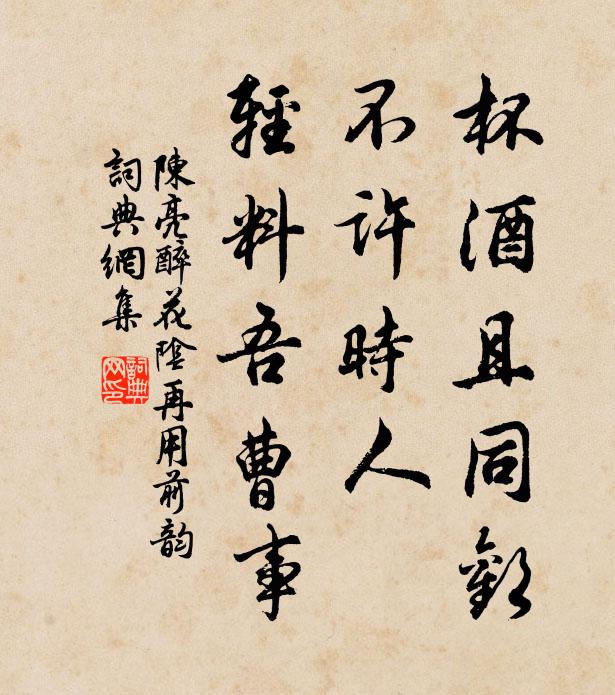 杯酒且同歡
不許時人
輕料吾曹事
陳亮醉花陰再用前韵
詞典網集
詞典
网印